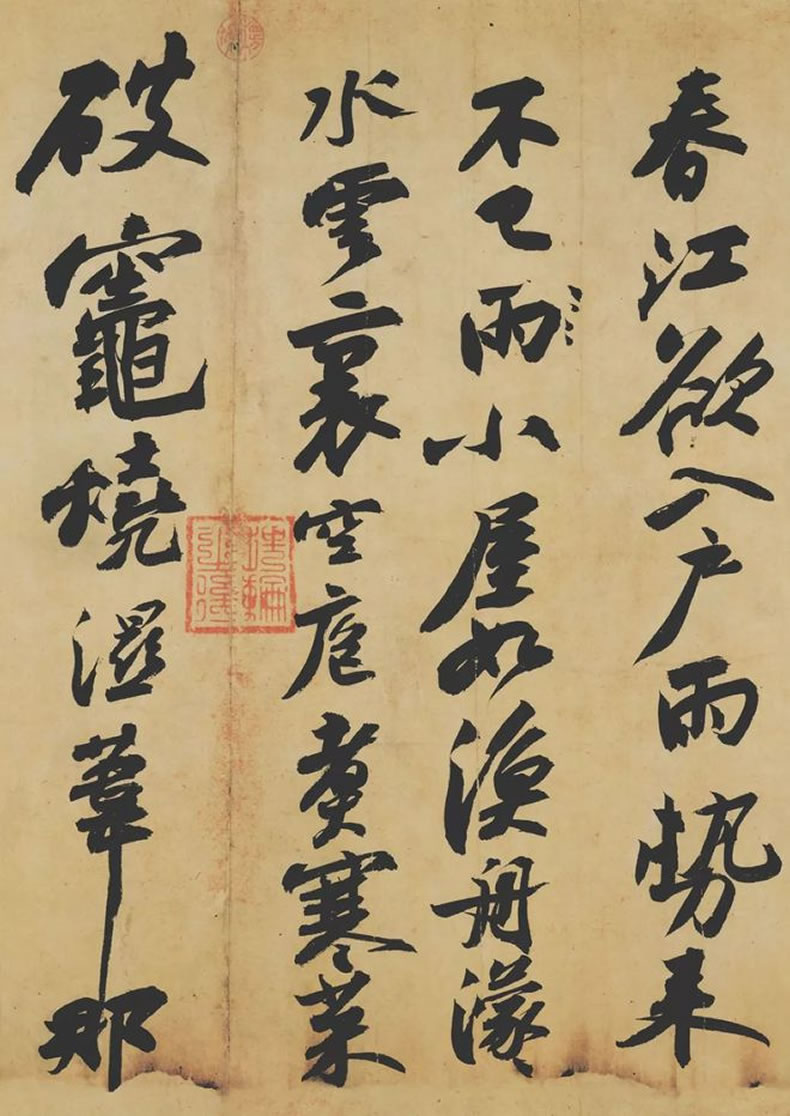 春江欲入戶雨勢来
不已雨小屋如漁舟濛〻
水雲裏空庖煮寒菜
破竈燒濕葦那
埋輪之後